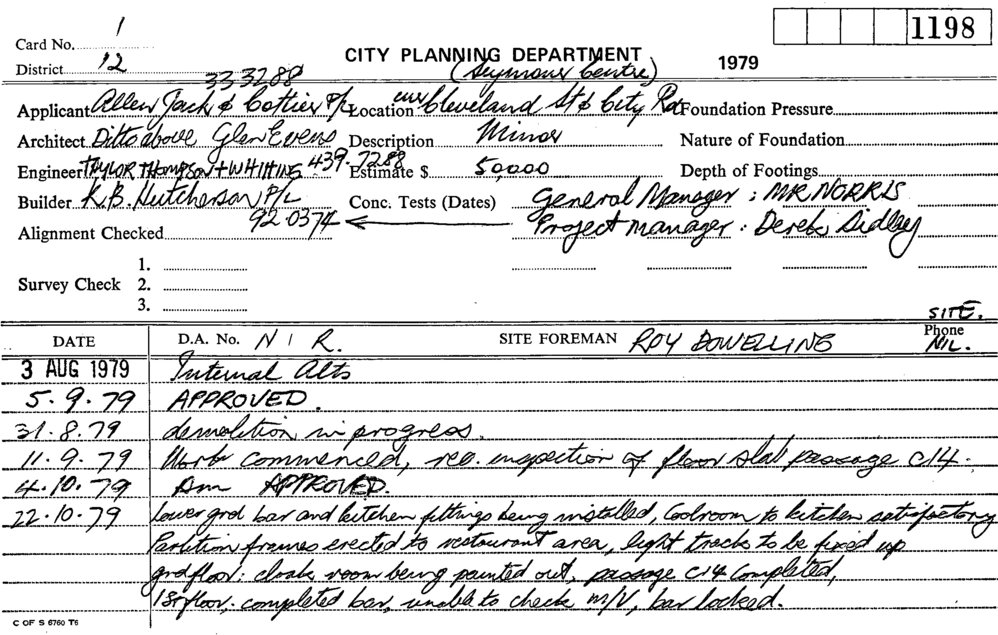 1198
Card No. 1
CITY PLANNING DEPARTMENT 1979
District 12
333288 (Seymour Centre)
Applicant Allen Jack & Cottier P/L Location cnr Cleveland St & City Rd Foundation Pressure
Architect Ditto above Glen Evens Description Minor Nature of Foundation
Engineer TAYLOR THOMPSON + WHITTING 439-7288 Estimate $ 50,000 Depth of Footings
Builder K.B. Hutcherson P/L Conc. Tests (Dates) General Manager : MR NORRIS
Alignment Checked 92-0374 Project Manager : Derek Sidley
1.
Survey Check 2.
3.
SITE.
DATE D.A. No. N I R. SITE FOREMAN ROY DOWELLING Phone NIL.
3 AUG 1979 Internal Alts
5.9.79 APPROVED.
31.8.79 demolition in progress.
11.9.79 Work commenced, req. inspection of floor slab passage C14.
4.10.79 Am APPROVED.
22.10.79 Lower grd bar and kitchen fittings being installed, Coolroom to kitchen satisfactory
Partition frames erected to restaurant area, light tracks to be fixed up
grd floor: cloak room being painted out, passage C14 completed,
1st floor: completed bar, unable to check m/V, bar locked.
C OF S 6760 T6